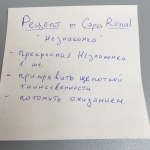 Рецепт от Capa Ronal
"Незнакомка"
- прекрасная Незнакомка
1 шт.
- приправить щепоткой
таинственности
- потомить ожиданием